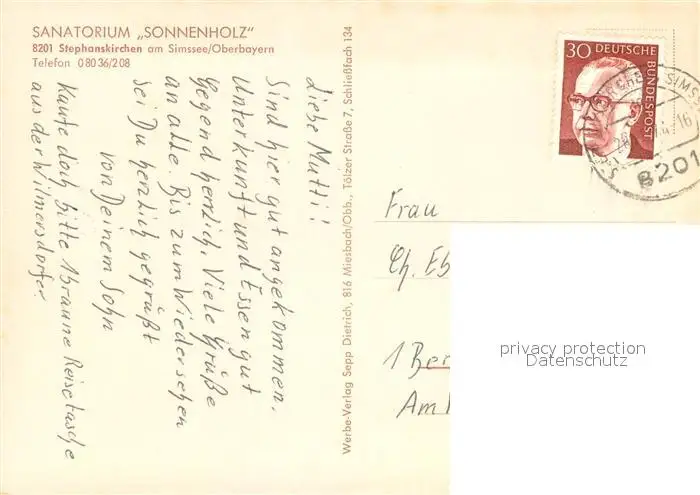 SANATORIUM „SONNENHOLZ"
8201 Stephanskirchen am Simssee/Oberbayern
Telefon 08036/208
Liebe Mutti!
Sind hier gut angekommen.
Unterkunft und Essen gut
Gegend herrlich. Viele Grüße
an alle. Bis zum Wiedersehen
sei Du herzlich gegrüßt
von Deinem Sohn
Kaufe doch bitte 1 braune Reisetasche
aus der Wilmersdorfer.
Werbe-Verlag Sepp Dietrich, 816 Miesbach/Obb., Tölzer Straße 7, Schließfach 134
30 DEUTSCHE
BUNDESPOST
8201
Frau
Ch. Eb
1 Ber
Am
privacy protection
Datenschutz